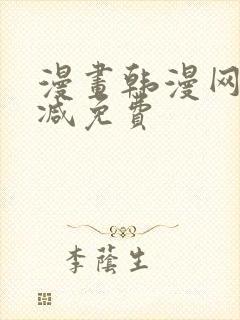 漫畫韩漫网
减免費
李蔭生